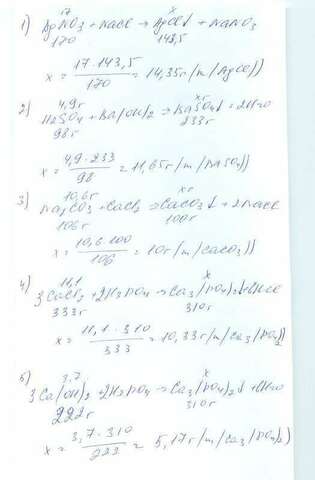 17 x
1) AgNO3 + NaCl → AgCl↓ + NaNO3
170 143,5
x = 17·143,5 / 170 = 14,35г /m/AgCl))
4,9г xг
2) H2SO4 + Ba(OH)2 → BaSO4↓ + 2H2O
98г 233г
x = 4,9·233 / 98 = 11,65г /m/BaSO4))
10,6г xг
3) Na2CO3 + CaCl2 → CaCO3↓ + 2NaCl
106г 100г
x = 10,6·100 / 106 = 10г /m/CaCO3))
11,1 x
4) 3CaCl2 + 2H3PO4 → Ca3/PO4)2↓ + 6HCl
333г 310г
x = 11,1·310 / 333 = 10,33г /m/Ca3/PO4)2)
3,7 x
5) 3Ca(OH)2 + 2H3PO4 → Ca3/PO4)2↓ + 6H2O
222г 310г
x = 3,7·310 / 222 = 5,17г /m/Ca3/PO4)2)